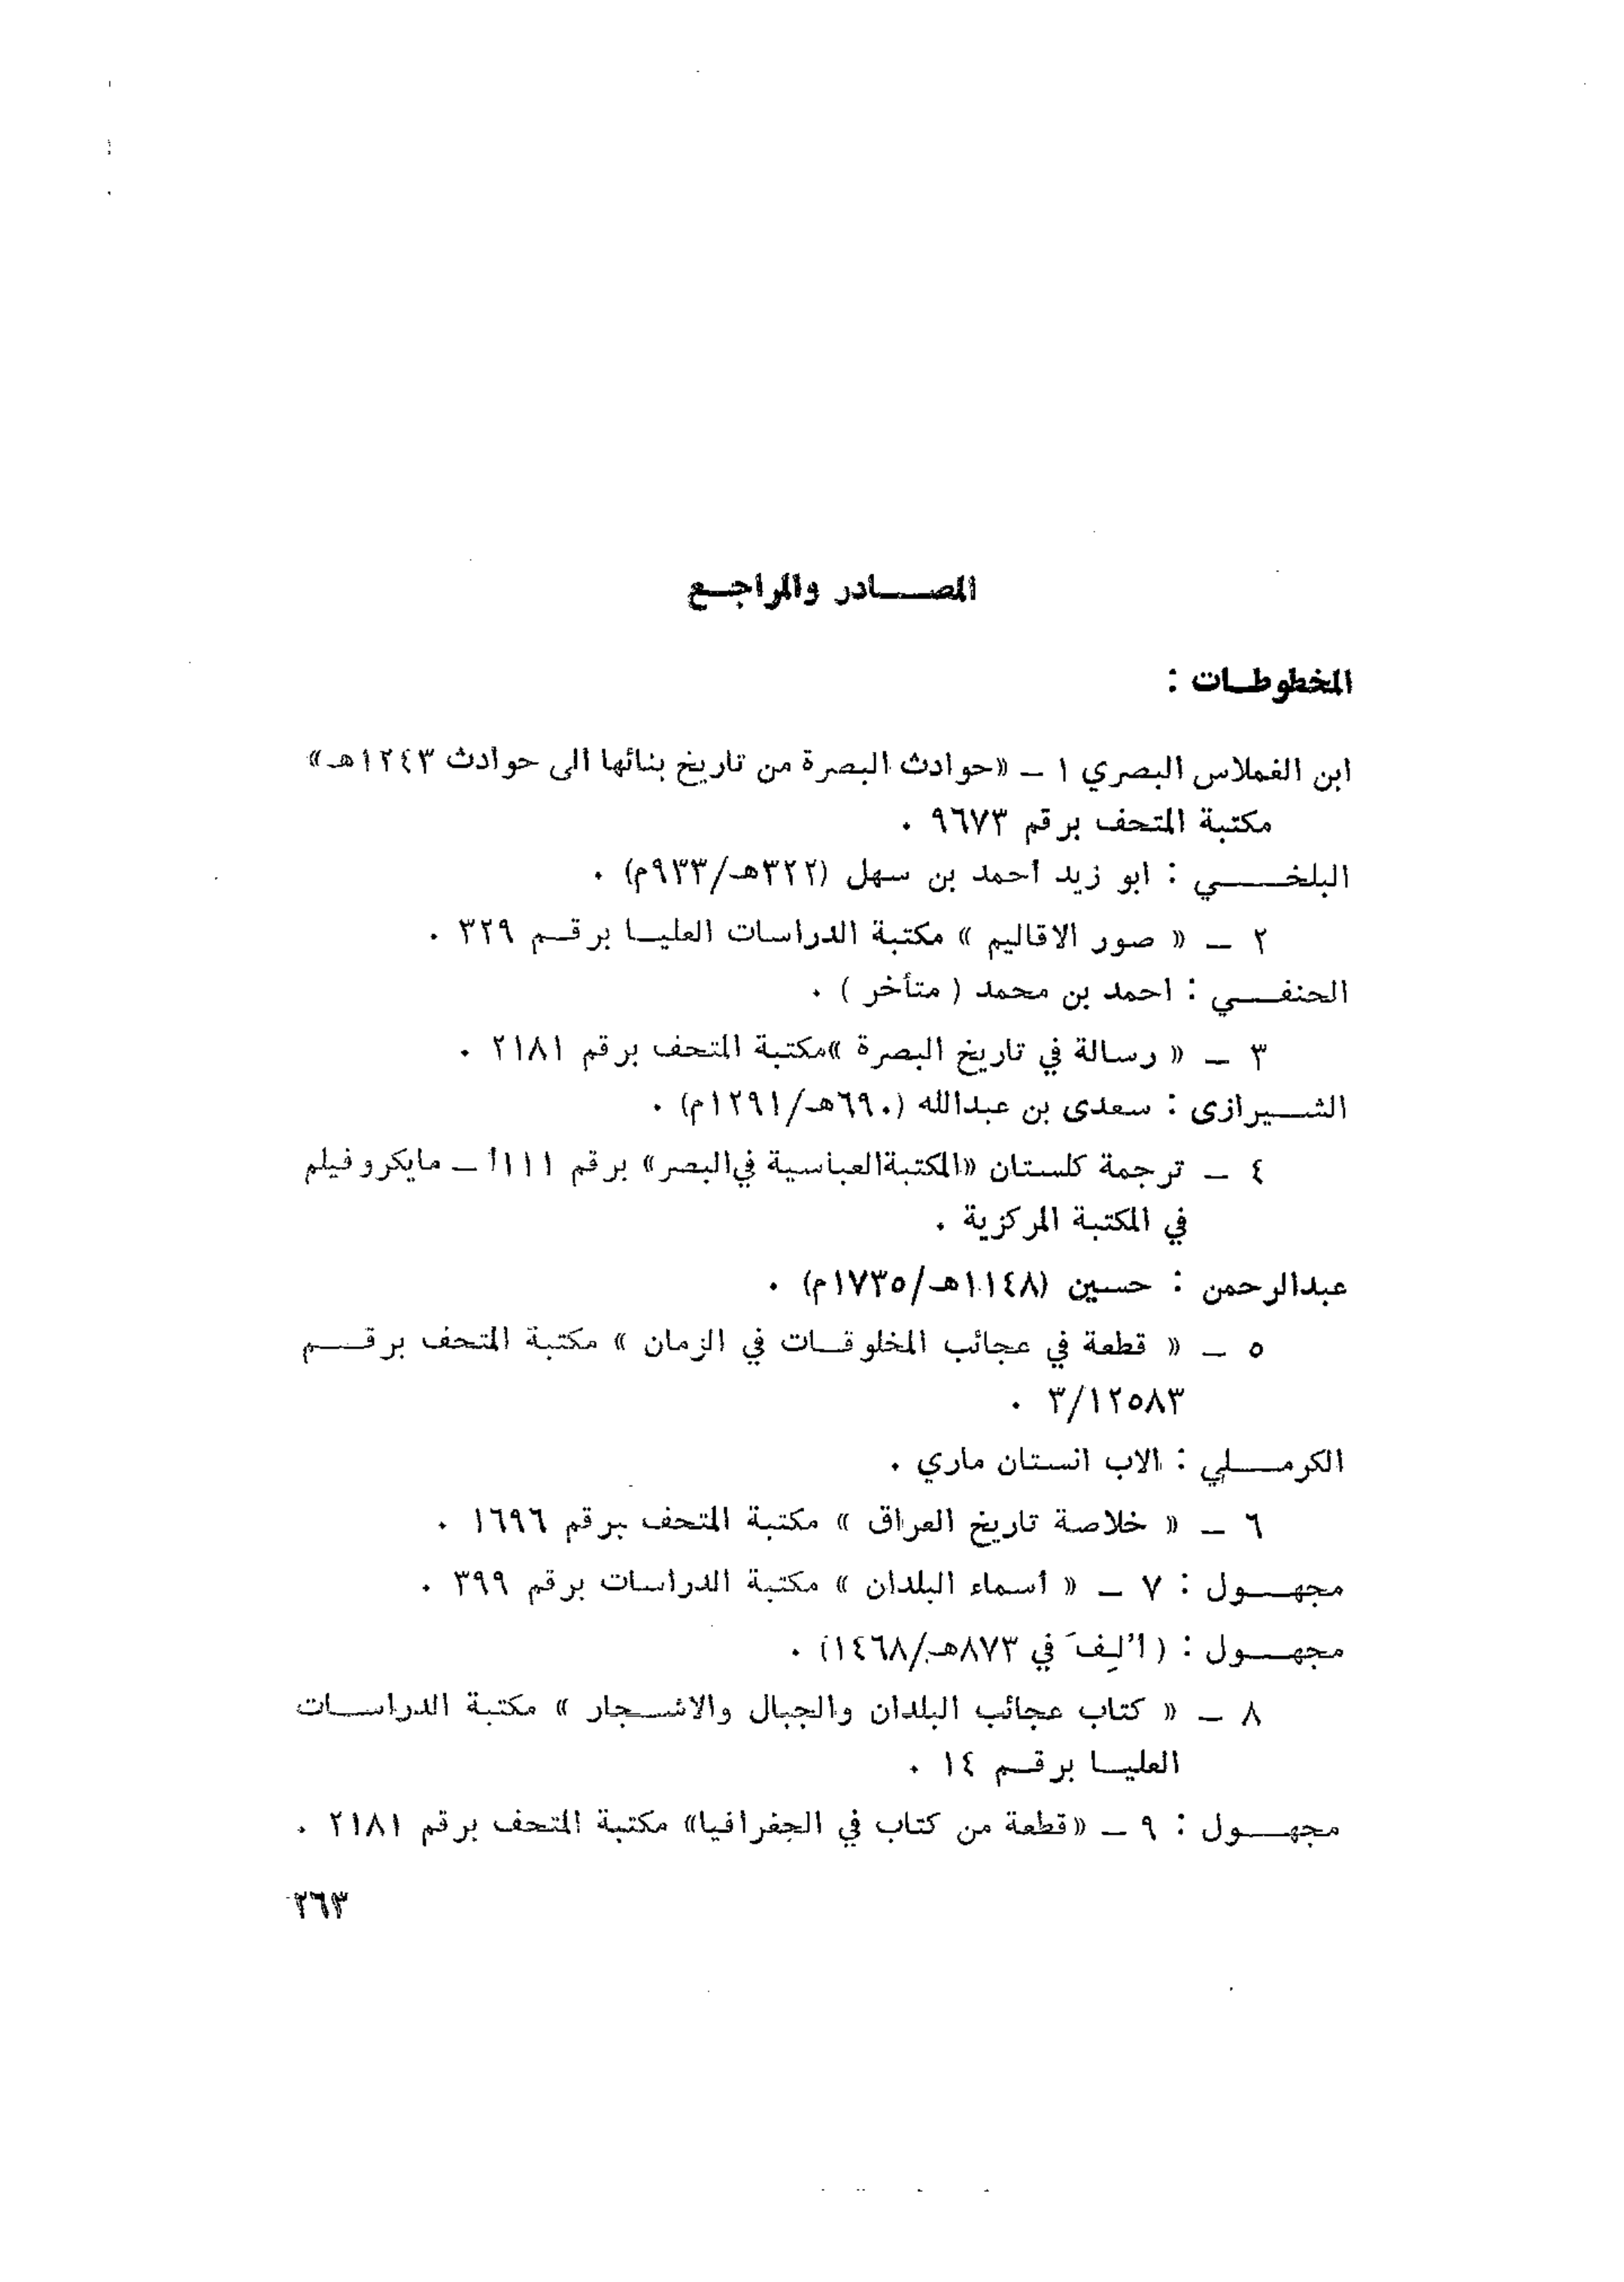 المصادر والمراجع
المخطوطات :
ابن الغملاس البصري ١ ــ «حوادث البصرة من تاريخ بنائها الى حوادث ١٢٤٣هـ»
مكتبة المتحف برقم ٩٦٧٣ .
البلخي : ابو زيد أحمد بن سهل (٣٢٢هـ/٩٣٣م) .
٢ ــ « صور الاقاليم » مكتبة الدراسات العليا برقم ٣٢٩ .
الحنفي : احمد بن محمد ( متأخر ) .
٣ ــ « رسالة في تاريخ البصرة »مكتبة المتحف برقم ٢١٨١ .
الشيرازى : سعدى بن عبدالله (٦٩٠هـ/١٢٩١م) .
٤ ــ ترجمة كلستان «المكتبةالعباسية فيالبصر» برقم ١١١أ ــ مايكروفيلم
في المكتبة المركزية .
عبدالرحمن : حسين (١١٤٨هـ/١٧٣٥م) .
٥ ــ « قطعة في عجائب المخلوقات في الزمان » مكتبة المتحف برقم
٣/١٢٥٨٣ .
الكرملي : الاب انستان ماري .
٦ ــ « خلاصة تاريخ العراق » مكتبة المتحف برقم ١٦٩٦ .
مجهول : ٧ ــ « أسماء البلدان » مكتبة الدراسات برقم ٣٩٩ .
مجهول : ( اُلِفَ في ٨٧٣هـ/١٤٦٨) .
٨ ــ « كتاب عجائب البلدان والجبال والاشجار » مكتبة الدراسات
العليا برقم ١٤ .
مجهول : ٩ ــ «قطعة من كتاب في الجغرافيا» مكتبة المتحف برقم ٢١٨١ .
٢٦٣